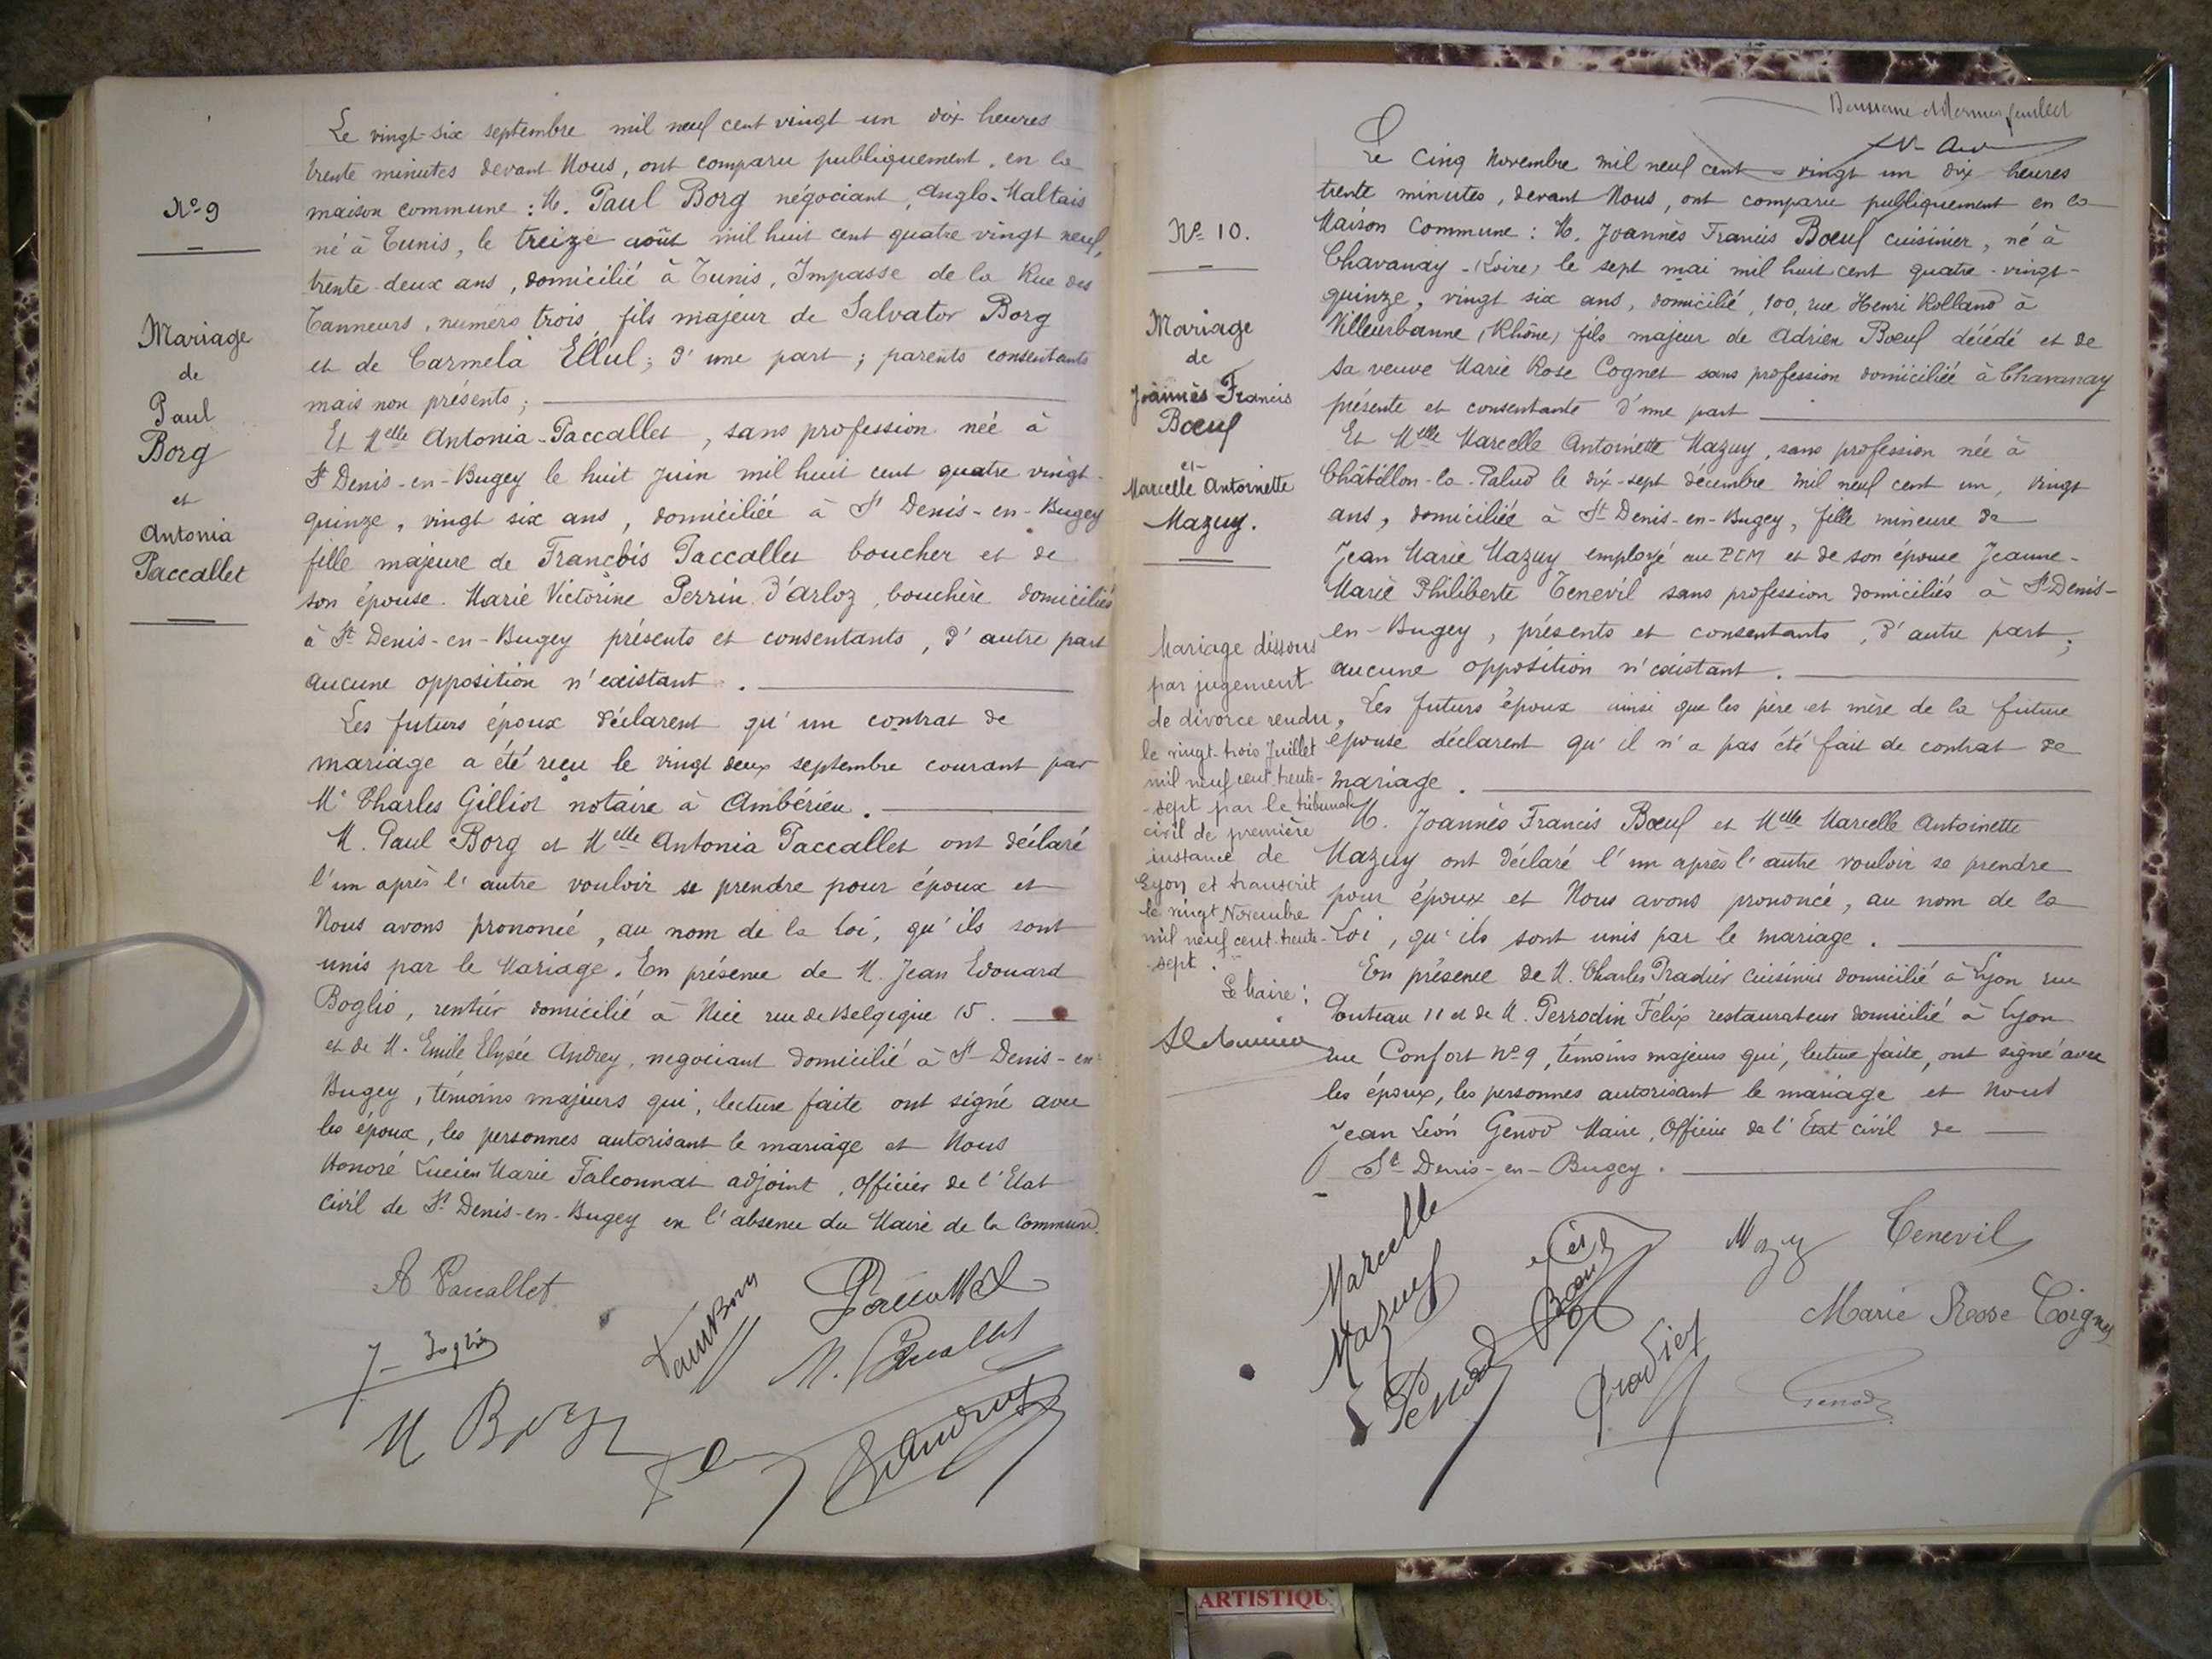 Le vingt-six septembre mil neuf cent vingt un dix heures
trente minutes devant Nous, ont comparu publiquement, en la
maison commune : M. Paul Borg négociant, Anglo-Maltais
né à Tunis, le treize août mil huit cent quatre vingt neuf,
trente-deux ans, domicilié à Tunis, Impasse de la Rue des
Tanneurs, numéro trois fils majeur de Salvator Borg
et de Carmela Ellul; d'une part; parents consentants
mais non présents;
Et Melle Antonia Paccallet, sans profession née à
St Denis-en-Bugey le huit Juin mil huit cent quatre vingt-
quinze, vingt six ans, domiciliée à St Denis-en-Bugey
fille majeure de François Paccallet boucher et de
son épouse Marie Victorine Perrin d'Arloz, bouchère domiciliés
à St Denis-en-Bugey présents et consentants, d'autre part
aucune opposition n'existant.
Les futurs époux déclarent qu'un contrat de
mariage a été reçu le vingt deux septembre courant par
Me Charles Gilliot notaire à Ambérieu.
M. Paul Borg et Melle Antonia Paccallet ont déclaré
l'un après l'autre vouloir se prendre pour époux et
Nous avons prononcé, au nom de la loi, qu'ils sont
unis par le Mariage. En présence de M. Jean Edouard
Boglio, rentier domicilié à Nice rue de Belgique 15.
et de M. Emile Elysée Andrey, negociant domicilié à St Denis-en-
Bugey, témoins majeurs qui, lecture faite ont signé avec
les époux, les personnes autorisant le mariage et Nous
Honoré Lucien Marie Falconnat adjoint, Officier de l'Etat
Civil de St Denis-en-Bugey en l'absence du Maire de la Commune.
No 9
Mariage
de
Paul
Borg
et
Antonia
Paccallet
A Paccallet
Paul Borg
Paccallet
J. Boglio
M. Paccallet
M Borg
Le Cinq Novembre mil neuf cent vingt un dix heures
trente minutes, devant Nous, ont comparu publiquement en la
Maison Commune : M. Joannès Francis Bœuf cuisinier, né à
Chavanay (Loire) le sept mai mil huit cent quatre-vingt-
quinze, vingt six ans, domicilié, 100, rue Henri Rolland à
Villeurbanne (Rhône) fils majeur de Adrien Bœuf décédé et de
sa veuve Marie Rose Cognet sans profession domiciliée à Chavanay
présente et consentante d'une part
Et Melle Marcelle Antoinette Mazuy, sans profession née à
Châtillon-la-Palud le dix-sept décembre mil neuf cent un, vingt
ans, domiciliée à St Denis-en-Bugey, fille mineure de
Jean Marie Mazuy employé au PLM et de son épouse Jeanne-
Marie Philiberte Tenevil sans profession domiciliés à St Denis-
en-Bugey, présents et consentants, d'autre part;
aucune opposition n'existant.
Les futurs époux ainsi que les père et mère de la future
épouse déclarent qu'il n'a pas été fait de contrat de
mariage.
M. Joannès Francis Bœuf et Melle Marcelle Antoinette
Mazuy ont déclaré l'un après l'autre vouloir se prendre
pour époux et Nous avons prononcé, au nom de la
Loi, qu'ils sont unis par le mariage.
En présence de M. Charles Pradier Cuisinier domicilié à Lyon rue
Pouteau 11 et de M. Perrodin Félix restaurateur domicilié à Lyon
rue Confort No 9, témoins majeurs qui, lecture faite, ont signé avec
les époux, les personnes autorisant le mariage et Nous
Jean Léon Genod Maire, Officier de l'Etat civil de
St Denis-en-Bugey.
No 10.
Mariage
de
Joannès Francis
Bœuf
et
Marcelle Antoinette
Mazuy.
Mariage dissous
par jugement
de divorce rendu
le vingt-trois Juillet
mil neuf cent trente-
sept par le tribunal
civil de première
instance de
Lyon et transcrit
le vingt Novembre
mil neuf cent trente-
sept.
Le Maire :
Marcelle
Mazuy
Mazuy
Tenevil
Marie Rose Coignet
Pradier
Genod
ARTISTIQU